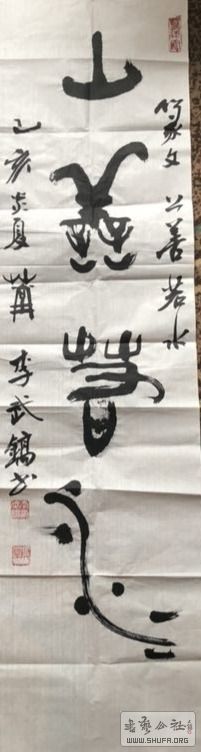 上善若水
篆文上善若水
己亥炎夏
李武镐书
书艺公社
WWW.SHUFA.ORG